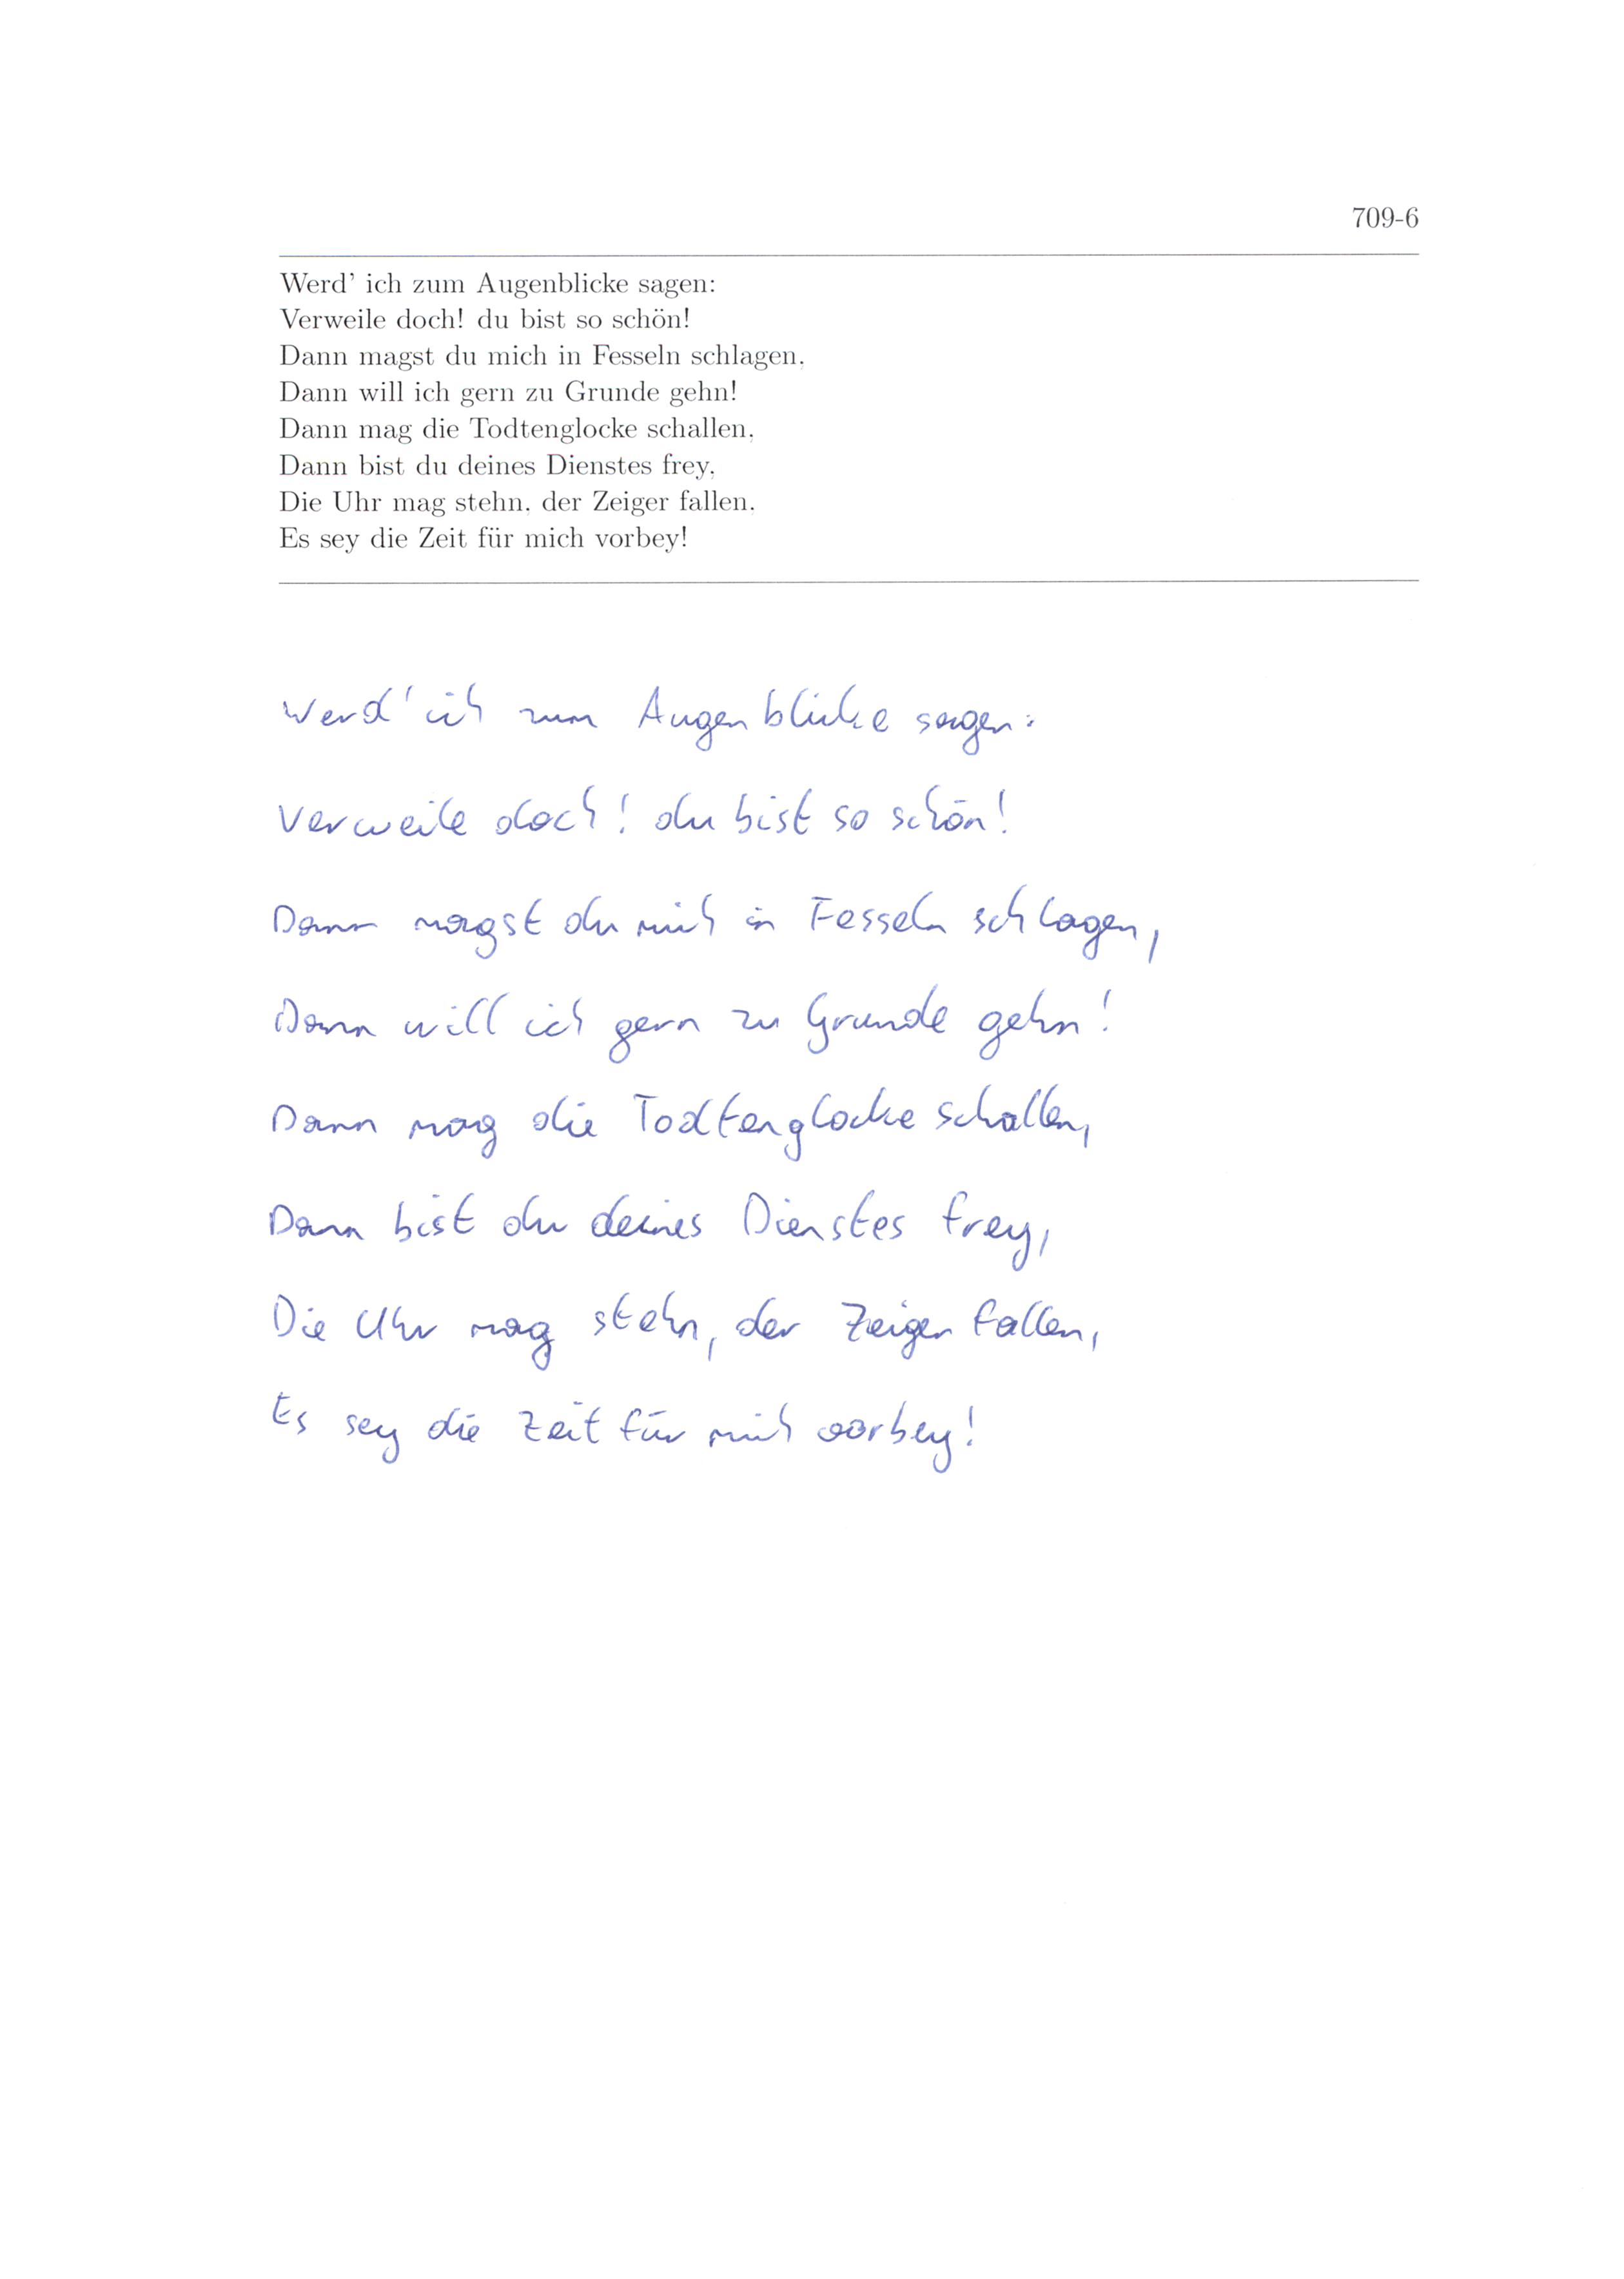 709-6
Werd' ich zum Augenblicke sagen:
Verweile doch! du bist so schön!
Dann magst du mich in Fesseln schlagen,
Dann will ich gern zu Grunde gehn!
Dann mag die Todtenglocke schallen,
Dann bist du deines Dienstes frey,
Die Uhr mag stehn, der Zeiger fallen,
Es sey die Zeit für mich vorbey!
Werd' ich zum Augenblicke sagen:
Verweile doch! du bist so schön!
Dann magst du mich in Fesseln schlagen,
Dann will ich gern zu Grunde gehn!
Dann mag die Todtenglocke schallen,
Dann bist du deines Dienstes frey,
Die Uhr mag stehn, der Zeiger fallen,
Es sey die Zeit für mich vorbey!